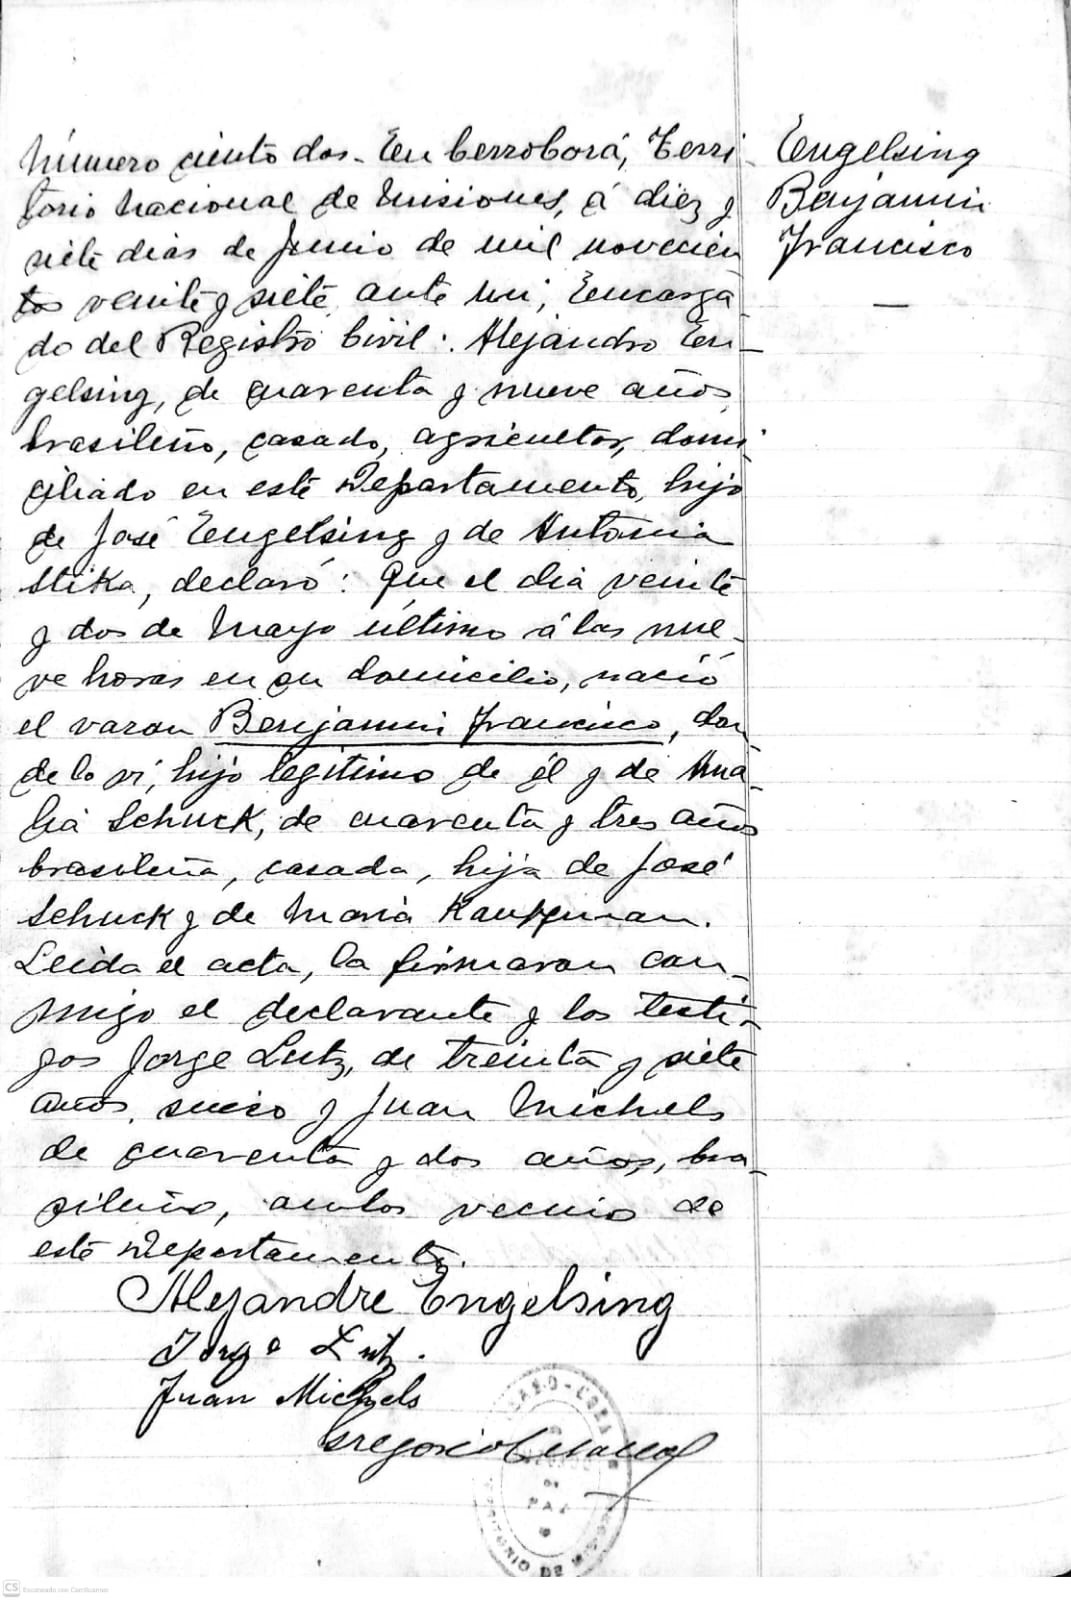 Número ciento dos. En Cerro Corá, Terri-
torio Nacional de Misiones, á diez y
siete dias de Junio de mil novecien-
tos veinte y siete, ante mi, Encarga-
do del Registro Civil: Alejandro En-
gelsing, de cuarenta y nueve años,
brasileño, casado, agricultor, domi-
ciliado en este Departamento, hijo
de José Engelsing y de Antonia
Stika, declaró: Que el dia veinte
y dos de Mayo último á las nue-
ve horas en su domicilio, nació
el varon Benjamin Francisco, don-
de lo vi, hijo legitimo de él y de Ama-
lia Schuck, de cuarenta y tres años
brasileña, casada, hija de José
Schuck y de Maria Kauffman.
Leida el acta, la firmaron con-
migo el declarante y los testi-
gos Jorge Lutz, de treinta y siete
años, suizo y Juan Michels
de cuarenta y dos años, bra-
sileño, ambos vecinos de
este Departamento.
Alejandre Engelsing
Jorge Lutz.
Juan Michels
Gregorio
Engelsing
Benjamin
Francisco
DE
PAZ
CS Escaneado con CamScanner